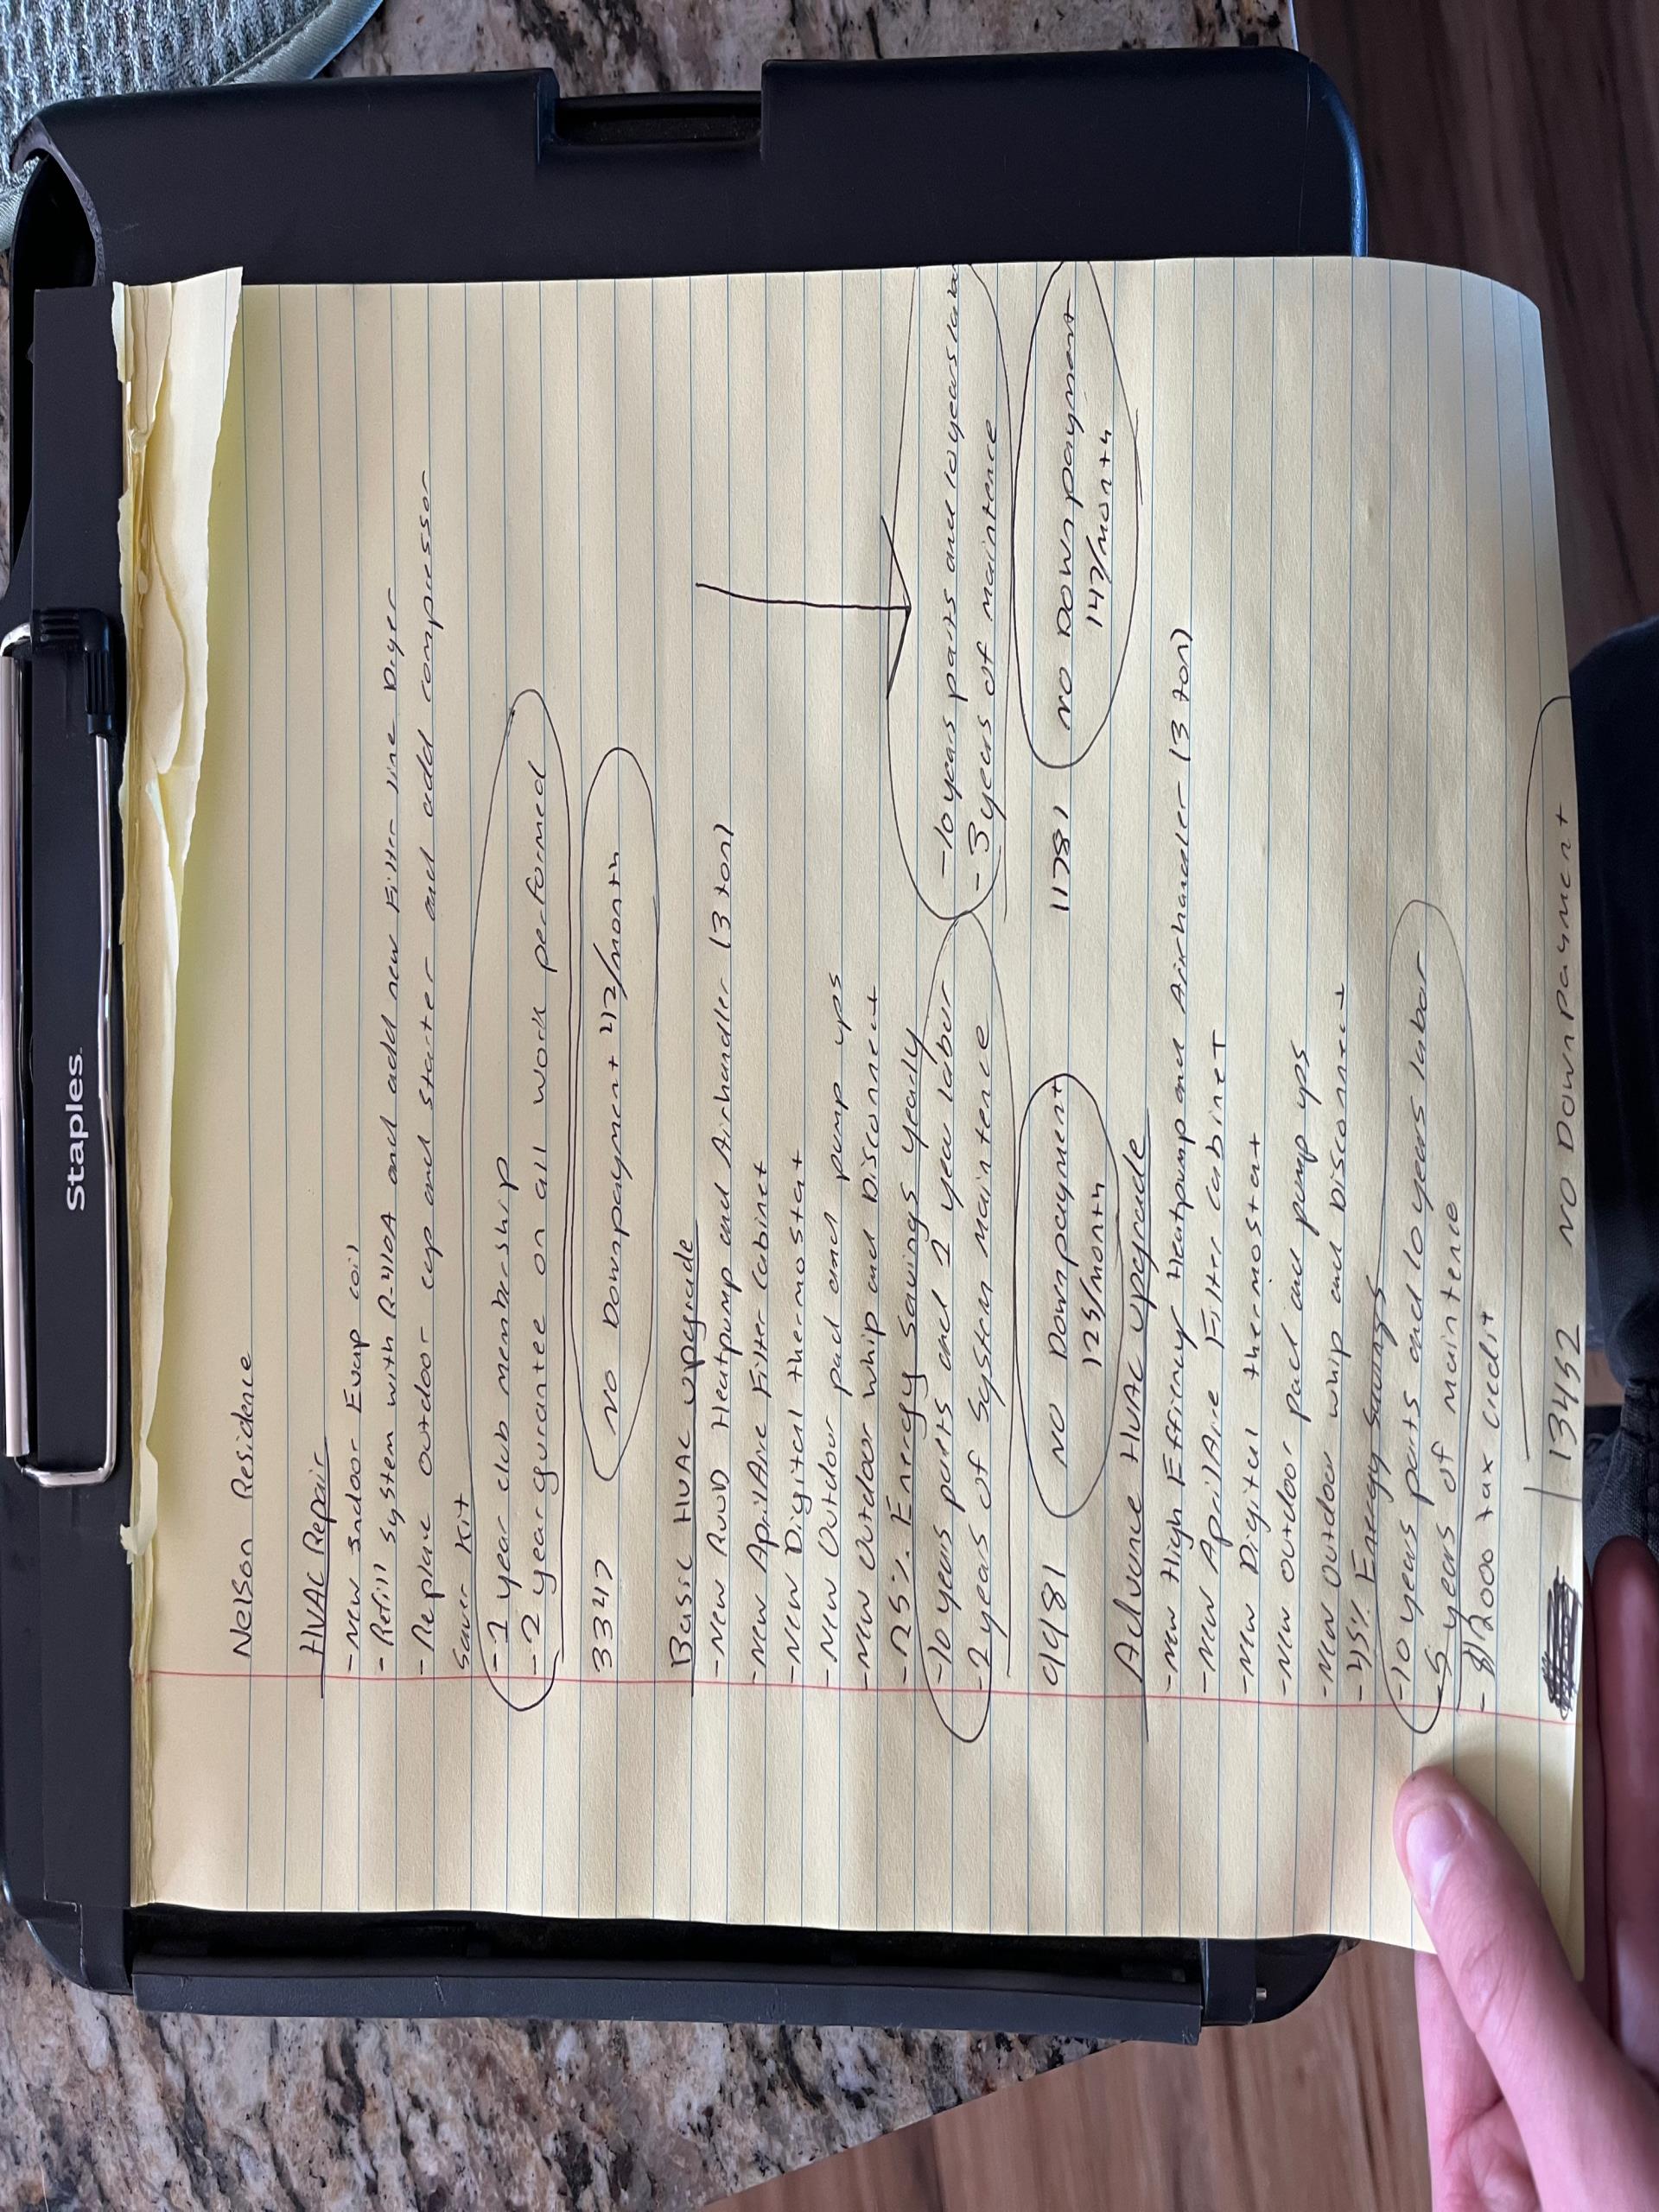 Staples
Nelson Residence
HVAC Repair
- New Indoor Evap coil
- Refill system with R-410A and add new Filter line Dryer
- Replace outdoor cap and starter and add compressor
saver Kit
- 1 year club membership
- 2 year gurantee on all work performed
3347 NO Downpayment 42/month
Basic HVAC upgrade
- New RUUD Heatpump and Airhandler (3 ton)
- New AprilAire Filter Cabinet
- New Digital thermostat
- New Outdoor pad and pump ups
- New Outdoor whip and Disconnect
- 25% Energy savings yearly
- 10 years parts and 1 year labor
- 2 years of system maintence
- 10 years parts and 10 years
- 3 years of maintence
9981 NO Downpayment
125/month
11781 NO Downpayment
147/month
Advance HVAC upgrade
- New High Efficiency Heatpump and Airhandler (3 ton)
- New AprilAire Filter Cabinet
- New Digital thermostat
- New outdoor pad and pump ups
- New outdoor whip and Disconnect
- 45% Energy Savings
- 10 years parts and 10 years labor
- 5 years of maintence
- $2000 tax credit
13452 NO Downpayment